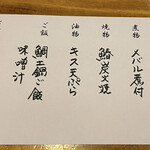 煮物
メバル煮付
焼物
鮎炭火焼
油物
キス天ぷら
ご飯
鯛土鍋ご飯
味噌汁